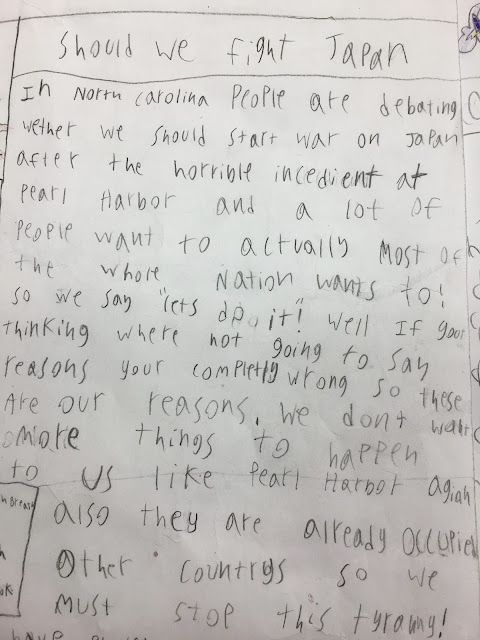 Should we fight Japan
In North carolina People are debating
wether we should start war on Japan
after the horrible incedient at
Pearl Harbor and a lot of
People want to actually Most of
the whole Nation wants to!
so we say "lets do it"! well If your
thinking where not going to say
reasons your completly wrong so these
Are our reasons. we dont
more things to happen
to us like Pearl Harbor agian
also they are already occupied
Other countrys so we
must stop this tyranny!